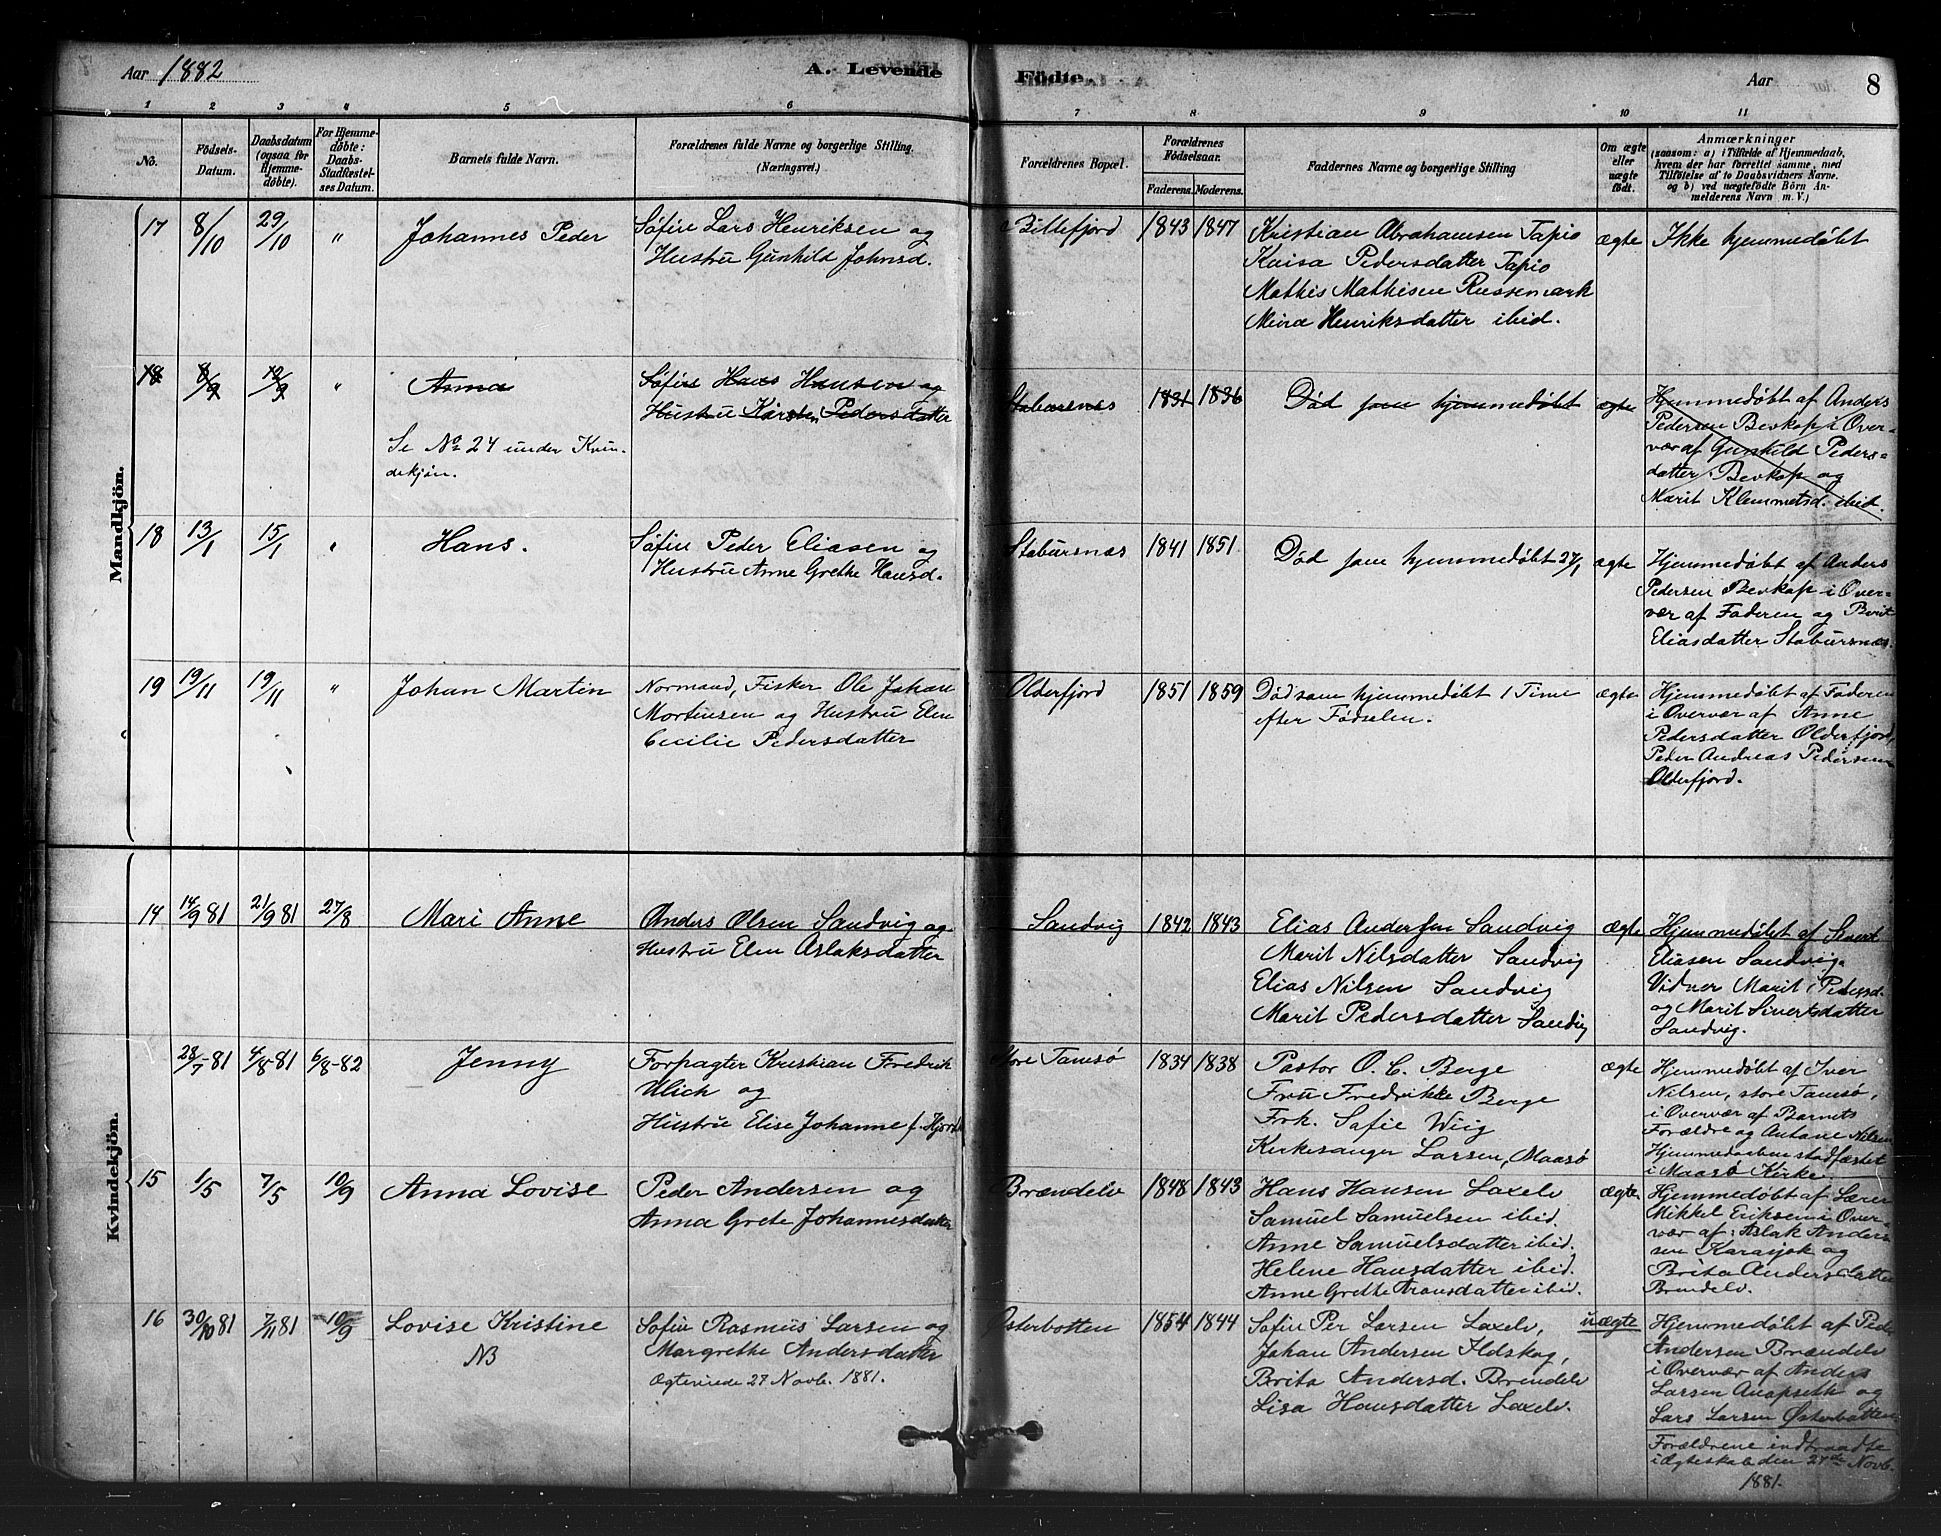 Aar 1882
A. Levende
Fødte.
Aar
8
1 2 3 4 5 6 7 8 9 10 11
No.
Födsels-Datum.
Daabsdatum (ogsaa for Hjemme-döbte).
For Hjemme-døbte: Daabs-Stadfæstel-ses Datum.
Barnets fulde Navn.
Forældrenes fulde Navne og borgerlige Stilling.
(Næringsvei.)
Forældrenes Bopæl.
Forældrenes Födselsaar.
Faderens. Moderens.
Faddernes Navne og borgerlige Stilling
Om ægte eller uægte födt.
Anmærkninger
(saasom: a) i Tilfælde af Hjemmedaab,
hvem der har forrettet samme, med
Tilföielse af to Daabsvidners Navne,
og b) ved uægtefödte Börn An-
melderens Navn m. V.)
Mandkjön.
17 8/10 29/10 " Johannes Peder
Søfin Lars Henriksen og
Hustru Gunhild Johnsd.
Billefjord 1843 1847
Kristian Abrahamsen Tapio
Kaisa Pedersdatter Tapio
Mathis Mathisen Russemark
Henriksdatter ibid.
ægte
Ikke hjemmedøbt
18 8/9 12/9 " Anna
Se No 24 under Kvin-
dekjøn.
Søfin Hans Hansen og
Hustru Kirsten Pedersdatter
Stabursnes 1831 1836
Død som hjemmedøbt
ægte
Hjemmedøbt af Anders
Pedersen Bevkop i Over-
vær af Gunhild Peders-
datter Bevkop og
Marit Klemmetsd. ibid.
18 13/1 15/1 " Hans.
Søfin Peder Eliasen og
Hustru Anne Grethe Hansd.
Stabursnæs 1841 1851
Død som hjemmedøbt 27/1
ægte
Hjemmedøbt af Anders
Pedersen Bevkop i Over-
vær af Faderen og Berit
Eliasdatter Stabursnæs.
19 19/11 19/11 " Johan Martin
Normand, Fisker Ole Johan
Mortensen og Hustru Elen
Cecilie Pedersdatter
Olderfjord 1851 1859
Død som hjemmedøbt 1 Time
efter Fødselen.
ægte
Hjemmedøbt af Faderen
i Overvær af Anne
Pedersdatter Olderfjord,
Peder Andreas Pedersen
Olderfjord.
Kvindekjön.
14 14/9 81 21/9 81 27/8 Mari Anne
Anders Olsen Sandvig og
Hustru Elen Aslaksdatter
Sandvig 1842 1843
Elias Andersen Sandvig
Marit Nilsdatter Sandvig
Elias Nilsen Sandvig
Marit Pedersdatter Sandvig
ægte
Hjemmedøbt af Sivert
Eliasen Sandvig.
Vidner Marit Pedersd.
og Marit Sivertsdatter
Sandvig.
28/7-81 4/8-81 6/8-82 Jenny
Forpagter Kristian Fredrik
Ulich og
Hustru Elise Johanne f. Hjorth
Store Tamsø 1834 1838
Pastor O. C. Berge
Fru Fredrikke Berge
Frk. Sofie Wiig
Kirkesanger Larsen, Maasø
ægte
Hjemmedøbt af Iver
Nilsen, store Tamsø,
i Overvær af Barnets
Forældre og Antane Nilsen
Hjemmedaaben stadfæstet
i Maasø Kirke.
15 1/5 7/5 10/9 Anna Lovise
Peder Andersen og
Anna Grete Johannesdatter
Brændelv 1848 1843
Hans Hansen Laxelv
Samuel Samuelsen ibid.
Anne Samuelsdatter ibid.
Helene Hansdatter ibid.
Anne Grethe Aronsdatter ibid.
ægte
Hjemmedøbt af Lærer
Mikkel Eriksen i Over-
vær af: Aslak Anders-
sen Karasjok og
Brita Andersdatter
Brendelv.
16 30/10 81 7/11 81 10/9 Lovise Kristine
NB
Søfin Rasmus Larsen og
Margrethe Andersdatter
Ægteviede 27 Novb. 1881.
Østerbotten 1854 1844
Søfin Per Larsen Laxelv,
Johan Andersen Ildskog,
Brita Andersd. Brendelv
Lisa Hansdatter Laxelv.
uægte
Hjemmedøbt af Peder
Andersen Brændelv
i Overvær af Anders
Larsen Anopseth og
Lars Larsen Østerbotten
Forældrene indtraadte
i Ægteskab den 27de Novb.
1881.